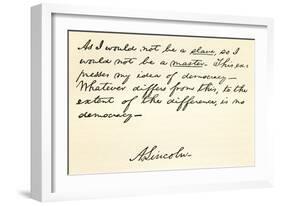 As I would not be a slave, so I
would not be a master. This ex=
presses my idea of democracy—
Whatever differs from this, to the
extent of the difference, is no
democracy—
A. Lincoln.